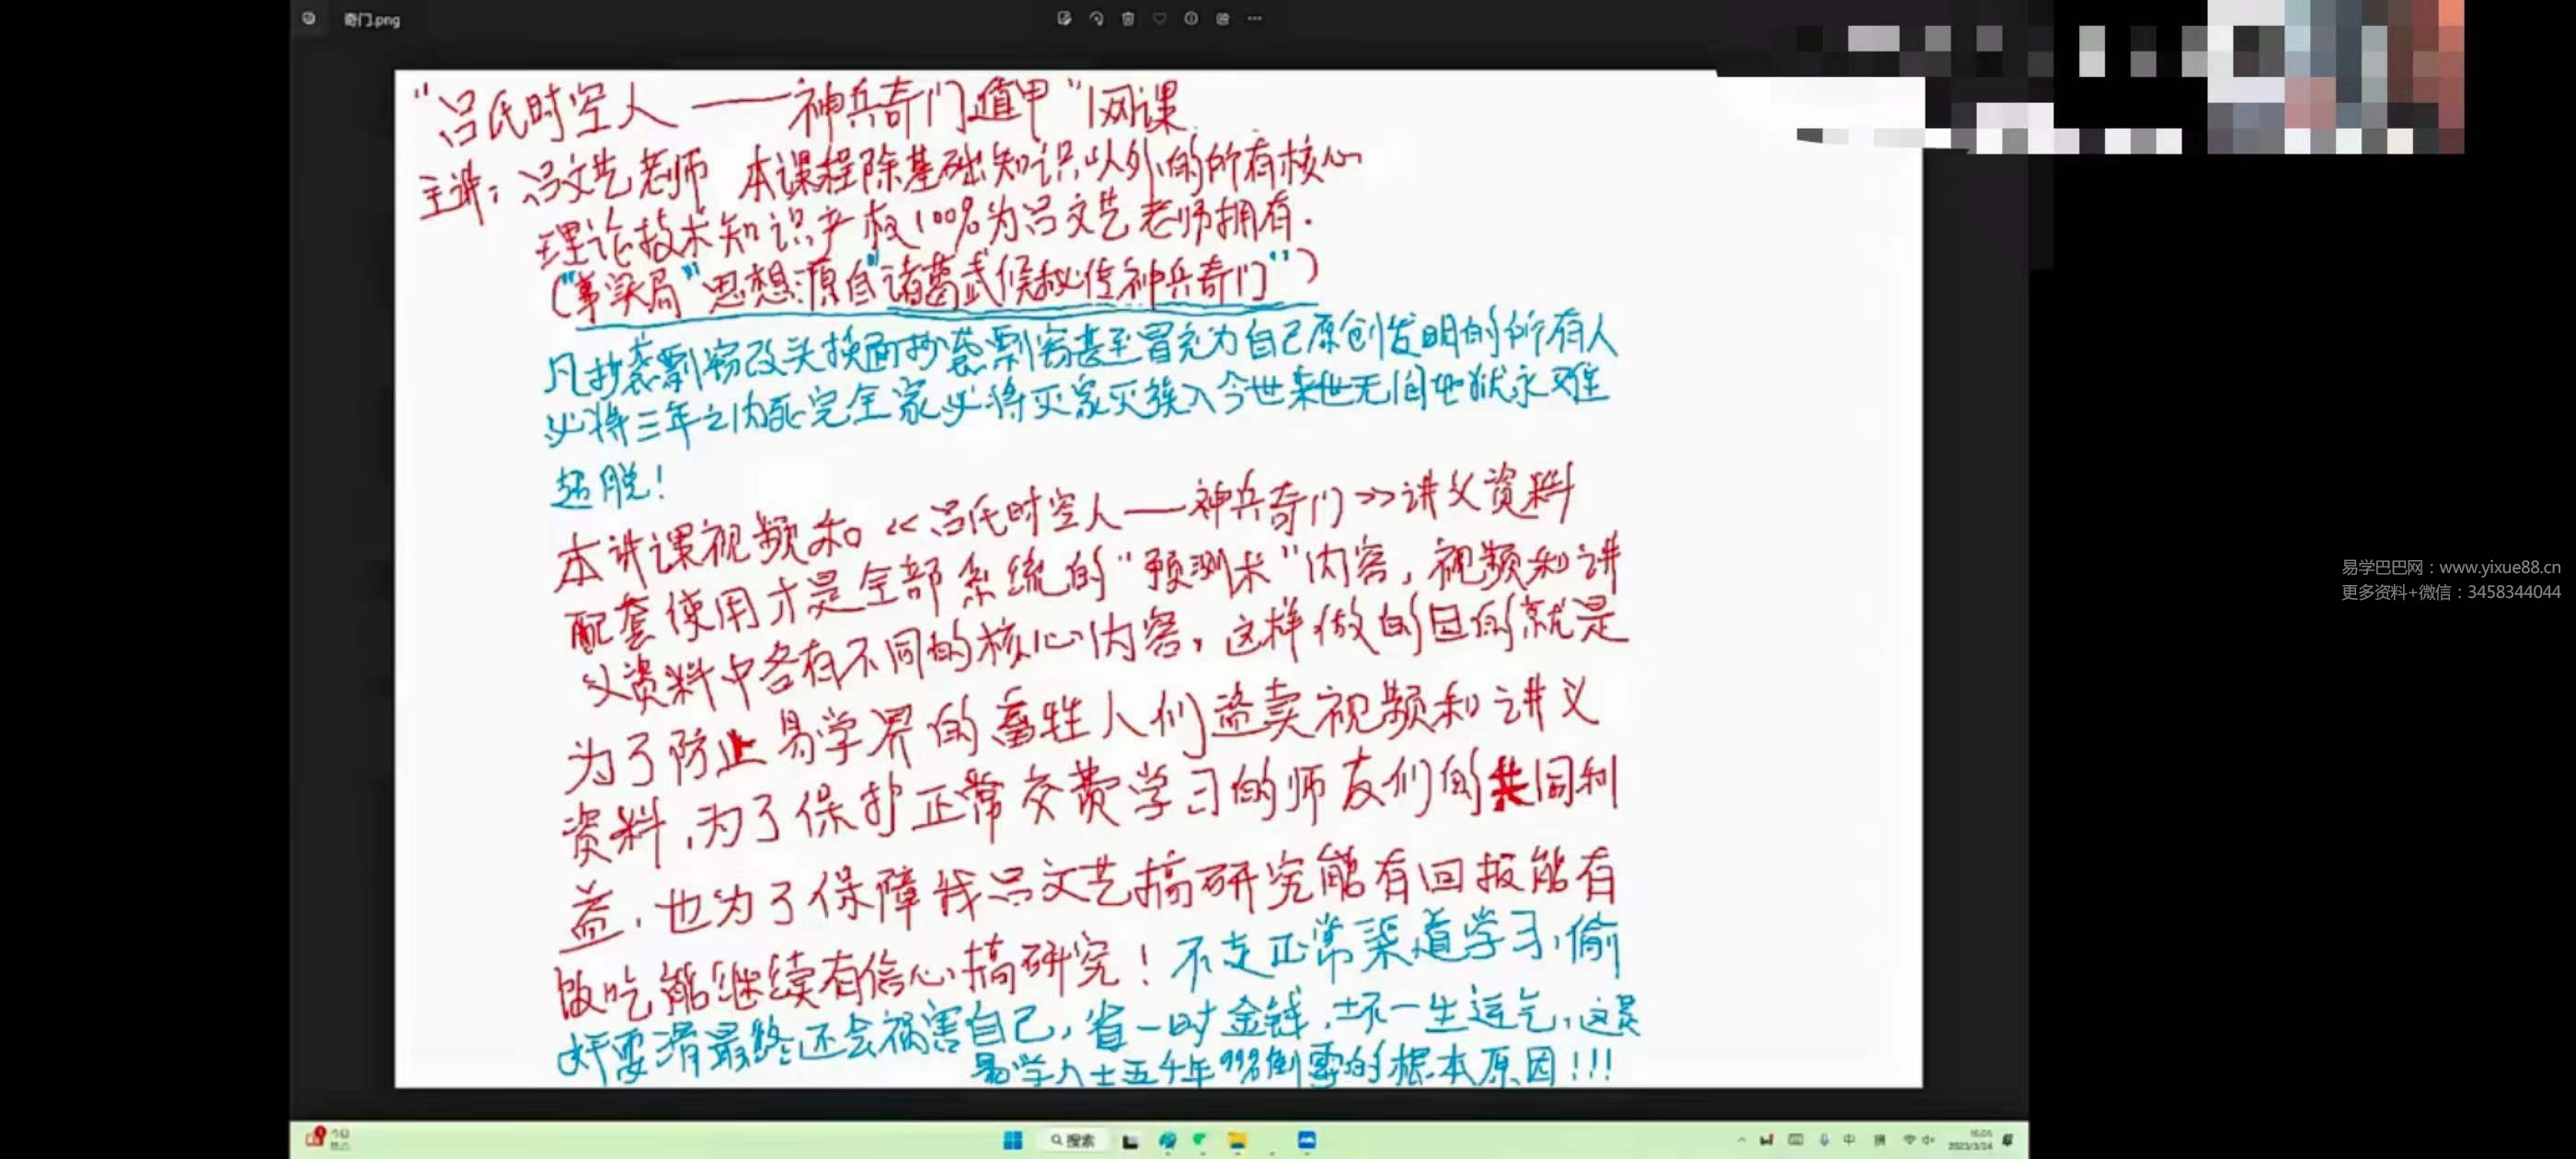 奇门.png
"吕氏时空人——神兵奇门遁甲"网课
主讲：吕文艺老师 本课程除基础知识以外的所有核心
理论技术知识产权100%为吕文艺老师拥有.
("事实局"思想源自"诸葛武候秘传神兵奇门")
凡抄袭剽窃改头换面抄袭剽窃甚至冒充为自己原创发明的所有人
必将三年之内死完全家必将灭家灭族入今世来世无间地狱永难
超脱！
本讲课视频和<<吕氏时空人——神兵奇门>>讲义资料
配套使用才是全部系统的"预测术"内容，视频和讲
义资料中各有不同的核心内容，这样做的目的就是
为了防止易学界的畜牲人们盗卖视频和讲义
资料，为了保护正常交费学习的师友们的共同利
益，也为了保障我吕文艺搞研究能有回报能有
饭吃能继续有信心搞研究！不走正常渠道学习，偷
奸耍滑最终还会祸害自己，省一时金钱，坏一生运气，这是
易学人士五千年99%倒霉的根本原因！！！
易学巴巴网：www.yixue88.cn
更多资料+微信：3458344044
搜索
中
拼
16:05
2023/3/24